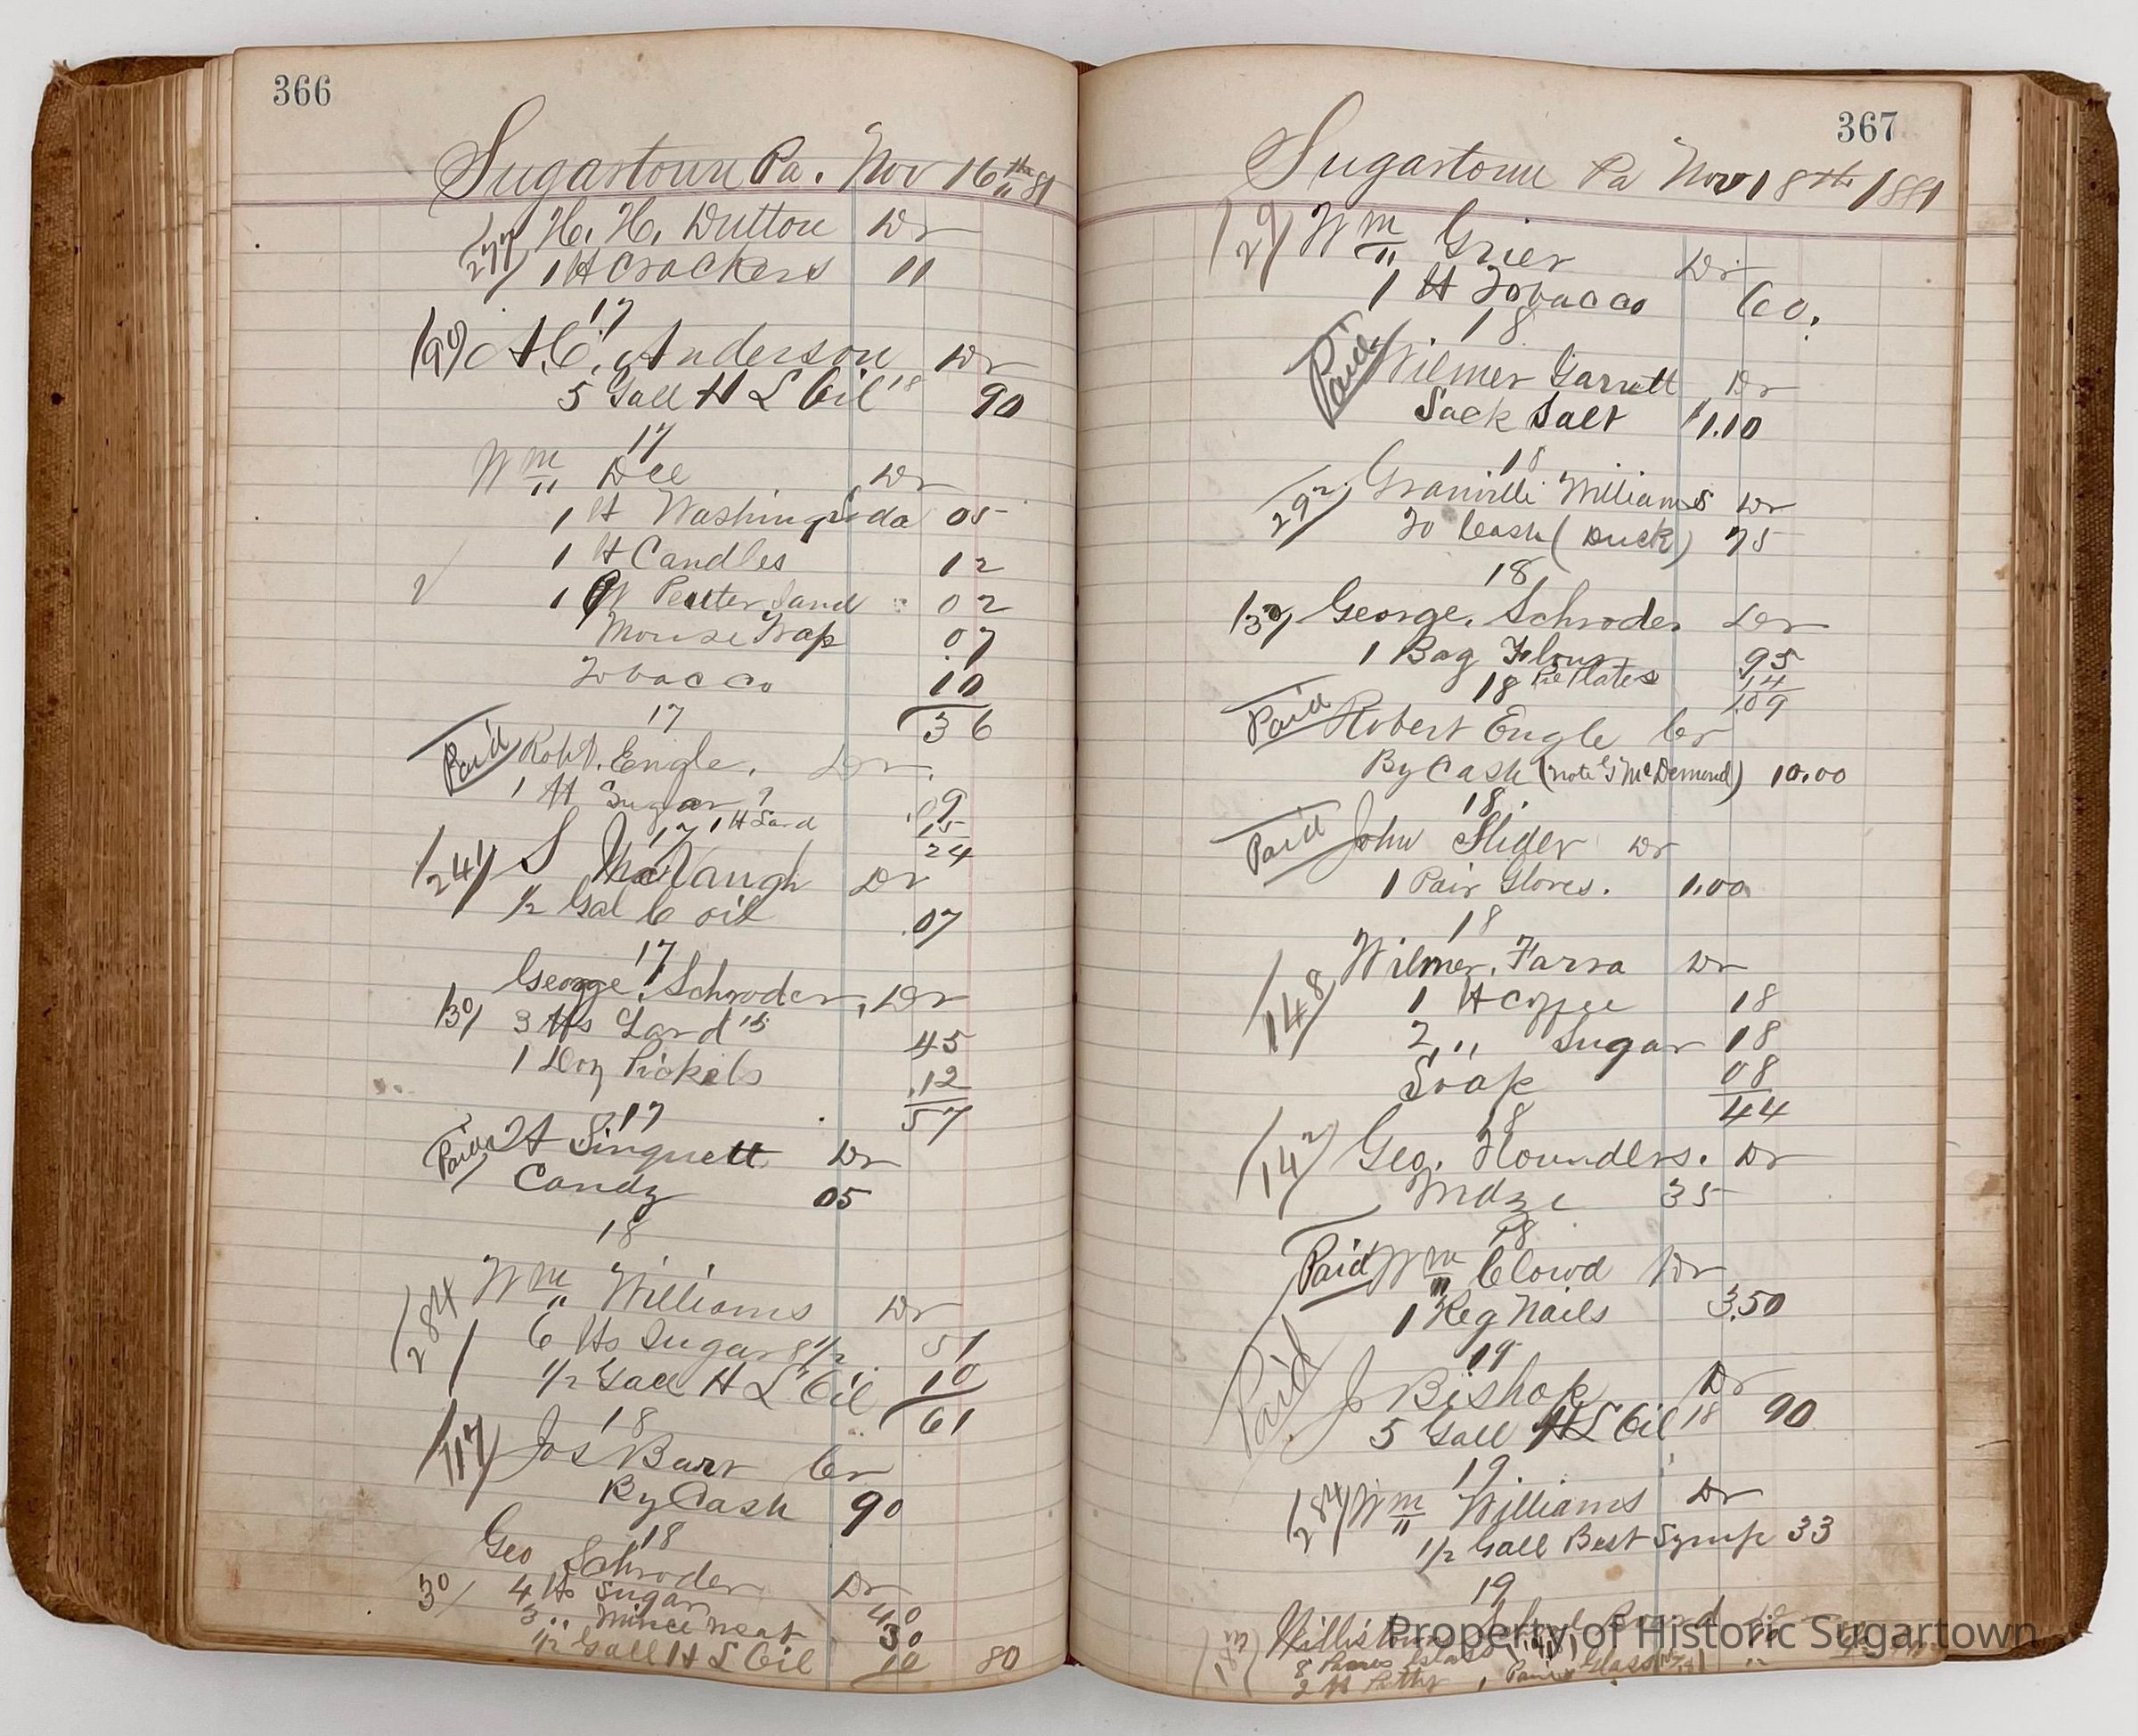 366
Sugartown Pa. Nov 16th 81
277 H. H. Dutton Dr
1 lb Crackers 11
17
190 A. C. Anderson Dr
5 Gall H L Oil 18 90
17
Wm Dee Dr
1 lb Washing Soda 05
1 lb Candles 12
1 Qt Peuter Sand 02
Mouse Trap 07
Tobacco 10
36
17
Paid Robt. Engle. Dr.
1 lb Sugar .09
17 1 lb Lard 15
24
241 S McVaugh Dr
1/2 Gal C oil .07
17
George Schroder, Dr
130 3 lbs Lard 15 45
1 Doz Pickels .12
57
17
Paid Singuett Dr
Candy 05
18
284 Wm Williams Dr
6 lbs Sugar 8 1/2 51
1/2 Gall H L Oil 10
61
18
117 Jos Barr Cr
By Cash 90
18
Geo Schroder Dr
30 4 lbs Sugar 40
3 " Mince meat 30
1/2 Gall H L Oil 10 80
367
Sugartown Pa Nov 18th 1881
129 Wm Grier Dr
1 lb Tobacco 60.
18
Paid Wilmer Garrett Dr
Sack Salt $1.10
18
292 Granville Williams Dr
To Cash (Duck) 75
18
130 George Schroder Dr
1 Bag Flour .95
18 Pie Plates 14
1.09
Paid Robert Engle Cr
By Cash (note McDemond) 10.00
18
Paid John Slider Dr
1 Pair Gloves. 1.00
18
148 Wilmer Farra Dr
1 lb Coffee 18
2 " Sugar 18
Soap 08
44
18
142 Geo. Hounders. Dr
Mdze 35
18
Paid Wm Clowd Dr
1 Keg Nails 3.50
19
Paid J Bishop Dr
5 Gall H L Oil 18 90
19
284 Wm Williams Dr
1/2 Gall Best Syrup 33
19
Willistown School Board
8 Panes Glass
2 lb Putty
Property of Historic Sugartown